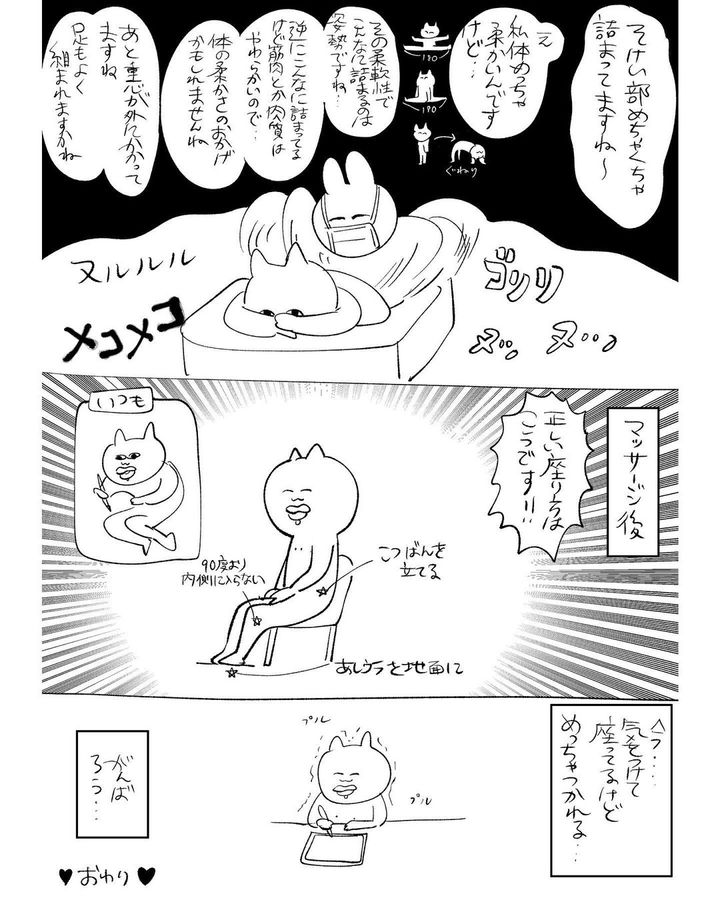 そけい部めちゃくちゃ
詰まってますね〜
え
私体めっちゃ
柔かいんです
けど…
180
190
ぐいねり
その柔軟性で
こんなに詰まるのは
姿勢ですね…
逆にこんなに詰まってる
けど筋肉とか肉質は
やわらかいので…
体の柔かさのおかげ
かもしれませんね
あと重心が外にかかって
ますね
足もよく
組まれますかね
ヌルルル
メコメコ
ゴリリ
ヌッ
ヌッ
マッサージ後
正しい座り方は
こうです!!
いつも
こつばんを
立てる
90度より
内側に入らない
あしウラを地面に
今…
気をつけて
座ってるけど
めっちゃつかれる…
プル
プル
がんば
ろう…
♥おわり♥